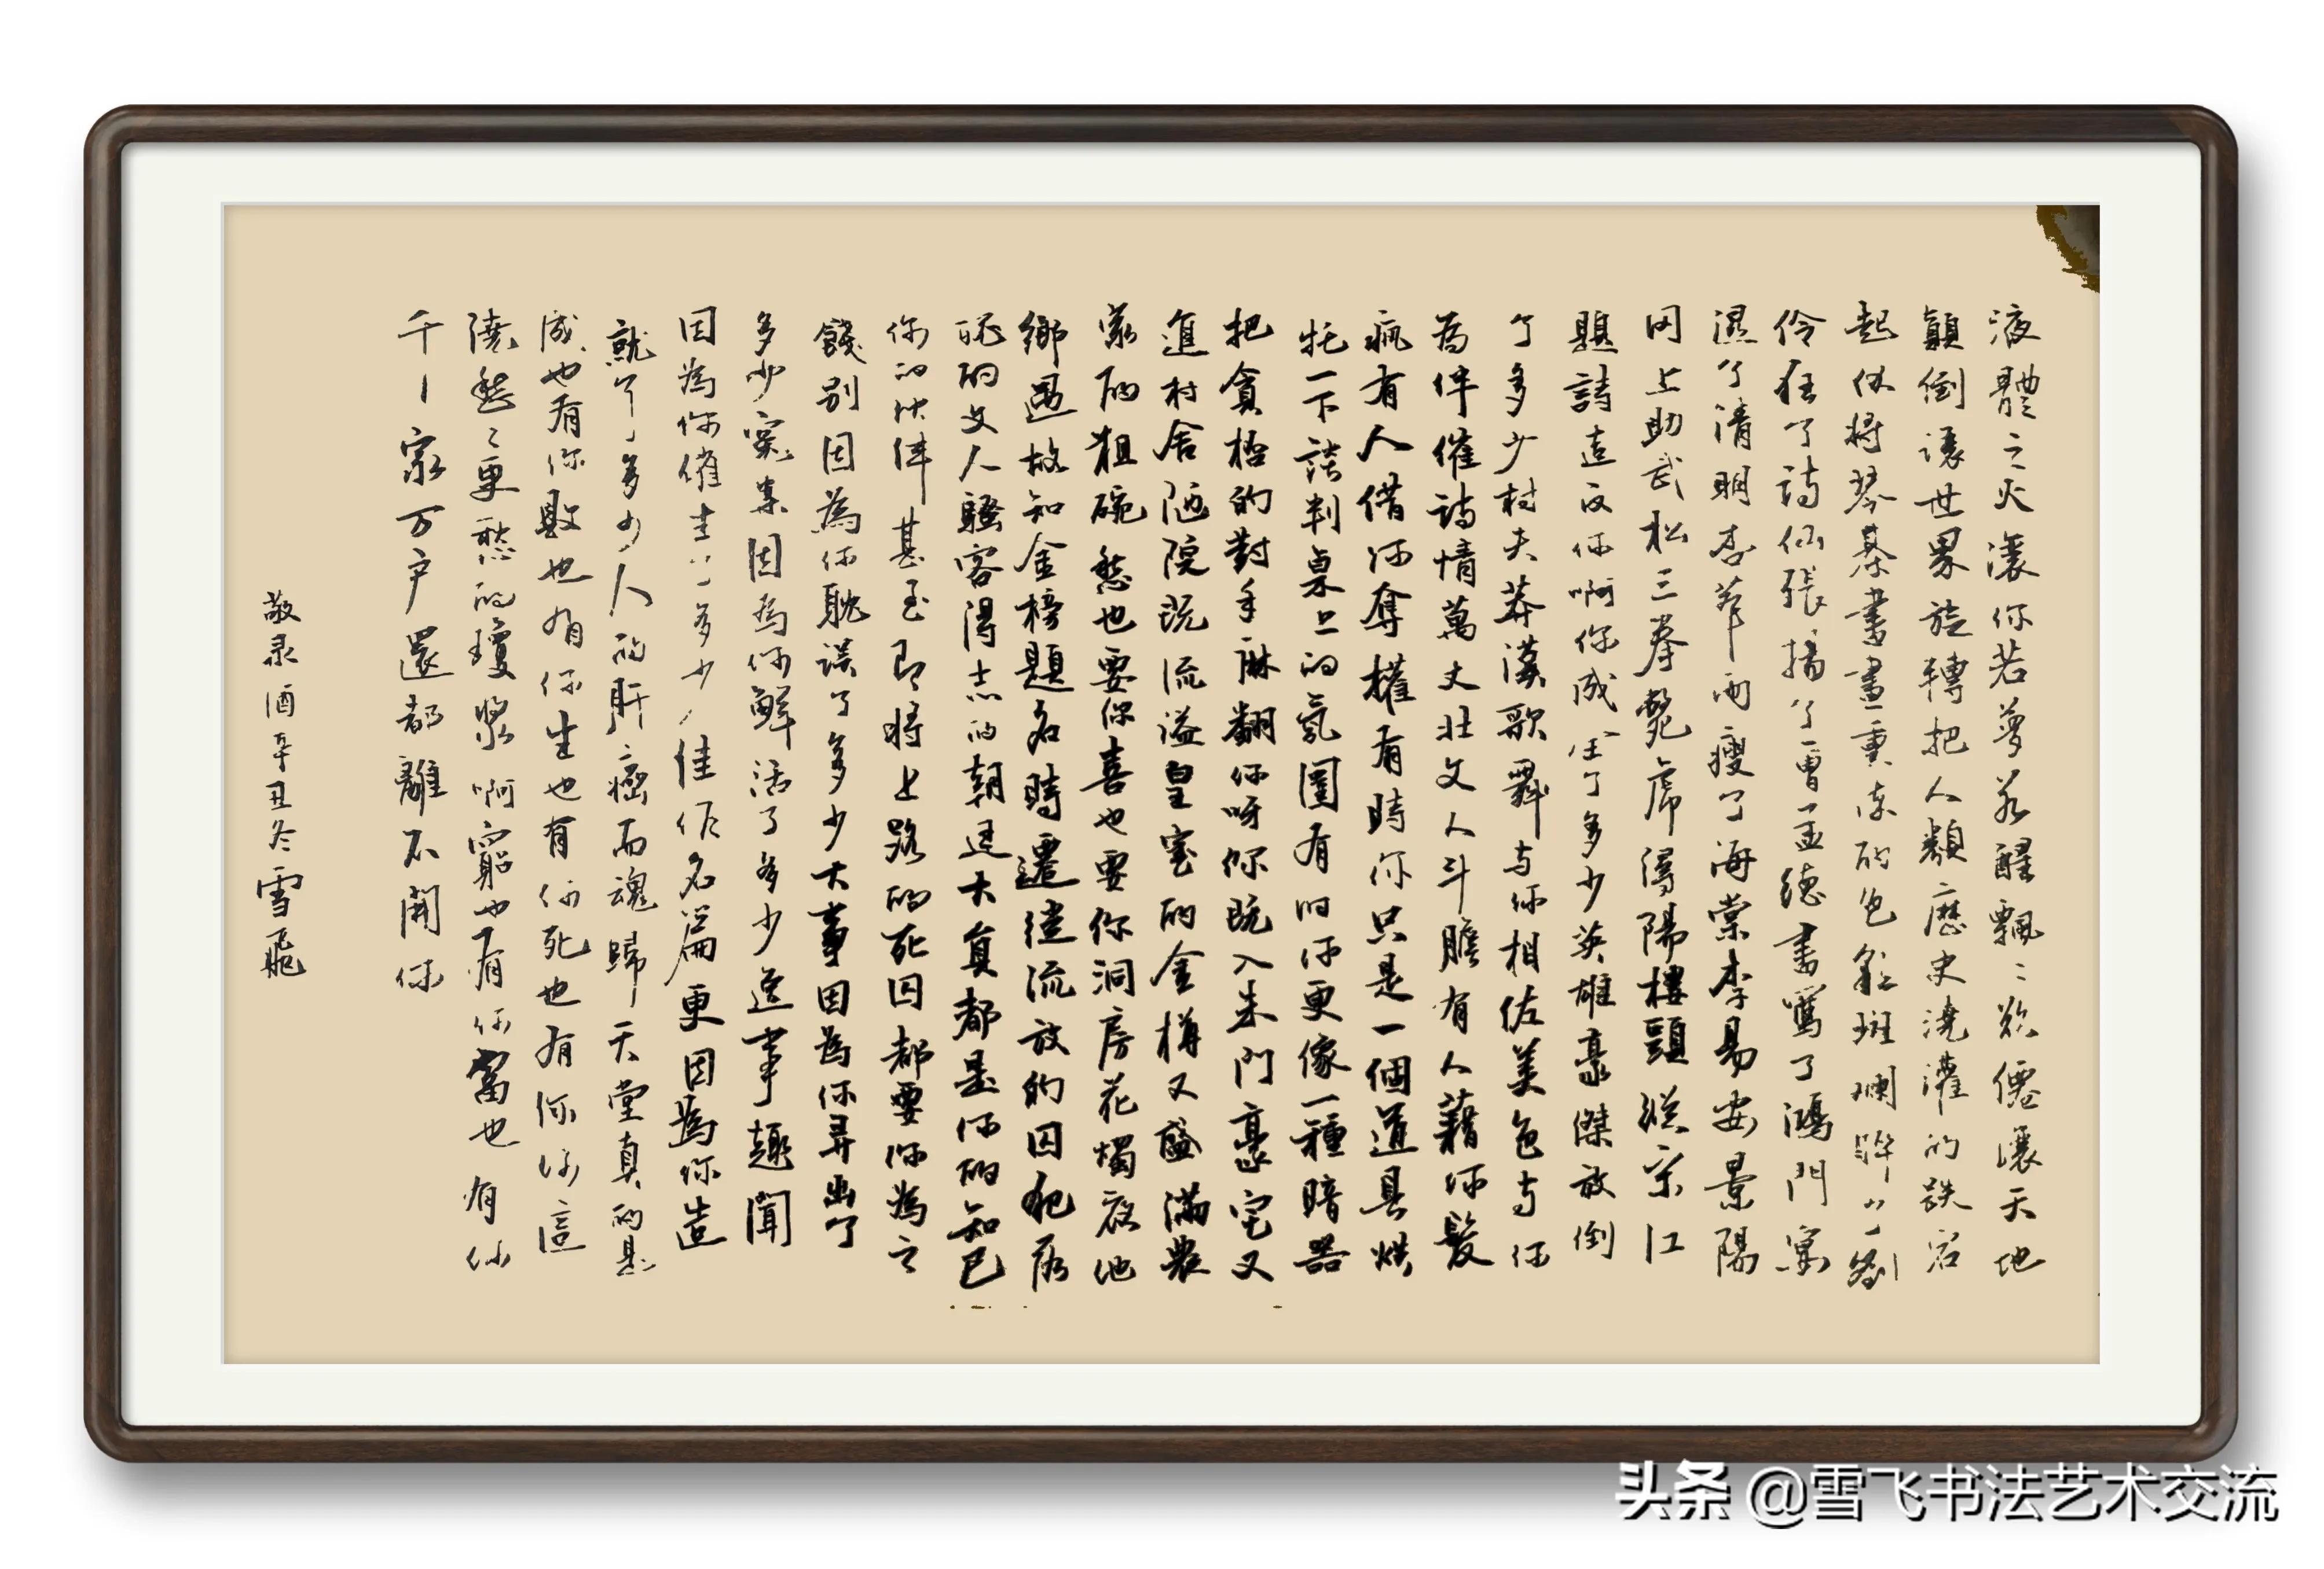 液體之火讓你若夢若醒飄飄欲僊讓天地
顛倒讓世界旋轉把人類歷史澆灌的跌宕
起伏將琴棊書畫熏染的色彩斑斕醉了劉
伶狂了詩仙張揚了曹孟德書寫了鴻門宴
濕了清明杏花雨瘦了海棠李易安景陽
岡上助武松三拳斃虎潯陽樓頭縱宋江
題詩造反你啊你成全了多少英雄豪傑放倒
了多少村夫莽漢歌舞与你相佐美色与你
為伴催詩情萬丈壯文人斗膽有人藉你髮
瘋有人借你奪權有時你只是一個道具烘
托一下談判桌上的氛圍有时你更像一種暗器
把貪婪的對手麻翻你呀你既入朱門豪宅又
進村舍陋院既流溢皇室的金樽又盛滿農
家的粗碗愁也要你喜也要你洞房花燭夜他
鄉遇故知金榜題名時遷徙流放的囚犯
的文人騷客得志的朝廷大員都是你的知己
你的伙伴甚至即將上路的死囚都要你為之
餞別因為你耽误了多少大事因為你弄出了
多少冤案因為你鮮活了多少逸事趣聞
因為你催生了多少佳作名篇更因為你造
就了多少人的肝癌而魂歸天堂真的是
成也有你敗也有你生也有你死也有你你這
澆愁愁更愁的瓊漿啊窮也有你富也有你
千家万户還都離不開你
敬录酒辛丑冬雪飛
头条 @雪飞书法艺术交流